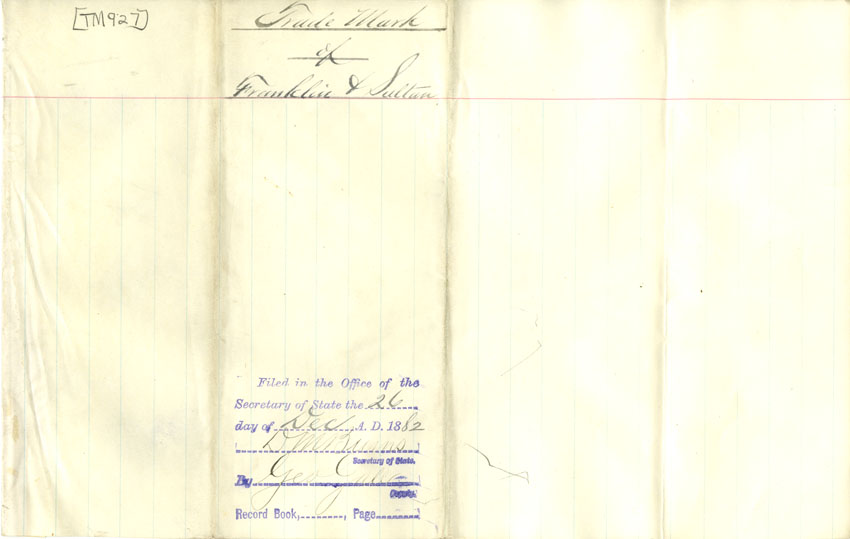 [TM927]
Trade Mark
of
Franklin & Sultan
Filed in the Office of the
Secretary of State the 26
day of Dec A. D. 1882
D M Burns
Secretary of State.
By Geo
Deputy.
Record Book, , Page